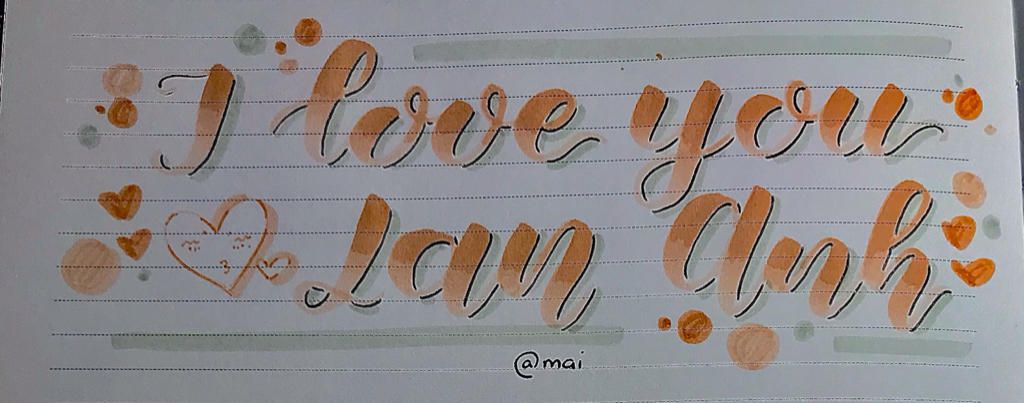 I love you
Lan Anh
@mai